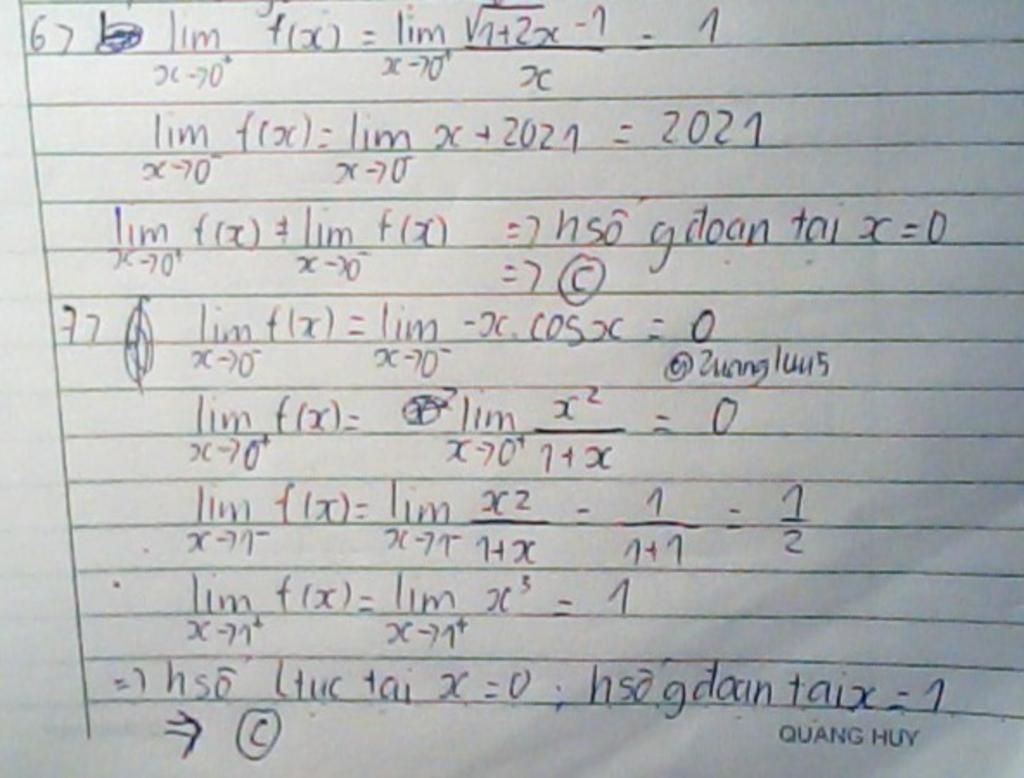 6> lim x→0⁺ f(x) = lim x→0⁺ (√1+2x -1)/x = 1
lim x→0⁻ f(x) = lim x→0⁻ x + 2021 = 2021
lim x→0⁺ f(x) ≠ lim x→0⁻ f(x) => hsố gđoạn tại x = 0
=> Ⓒ
7> lim x→0⁻ f(x) = lim x→0⁻ -x.cosx = 0
lim x→0⁺ f(x) = lim x→0⁺ x²/(1+x) = 0
lim x→1⁻ f(x) = lim x→1⁻ x²/(1+x) = 1/(1+1) = 1/2
lim x→1⁺ f(x) = lim x→1⁺ x³ = 1
=> hsố ltục tại x = 0 ; hsố gđoạn tại x = 1
⇒ Ⓒ
QUANG HUY